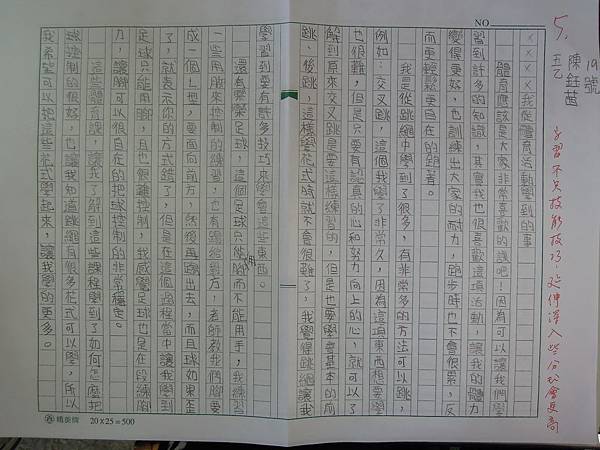 NO
19號
陳鈺茜
五乙
5.
學習不只技能技巧,延伸深入些分析會更高
××××我從體育活動學到的事
體育應該是大家非常喜歡的課吧!因為可以讓我們學
習到許多的知識,其實我也很喜歡這項活動,讓我的體力
變得更好,也訓練出大家的耐力,跑步時也不會很累,反
而更輕鬆更自在的
我是從跳繩中學到了很多,有非常多的方法可以跳,
例如:交叉跳,這個我學了非常久,因為這項東西想要學
也很難,但是只要有認真的心和努力向上的心,就可以了
解到原來交叉跳是要這樣練習的,但是也要學會基本的前
跳、後跳,這樣學花式時就不會很難了,我覺得跳繩讓我
學習到要有許多技巧來學會這些東西。
還有樂樂足球,這個足球只使用腳而不能用手,我練習
一些用腳來控制的練習,也有踢給對方,老師教我們腳要
成一個L型,要面向前方,然後再踢出去,而且球如果歪
了,就表示你的方式錯了,但是在這個過程當中讓我學到
足球只能用腳,且也很難控制,我感覺足球也是在鍛鍊腳
力,讓腳可以很自在的把球控制的非常穩定。
這些體育課,讓我了解到這些課程學到了如何怎麼把
球控制的很好,也讓我知道跳繩有很多花式可以學,所以
我希望可以把這些花式學起來,讓我學的更多。
精美牌 20×25=500